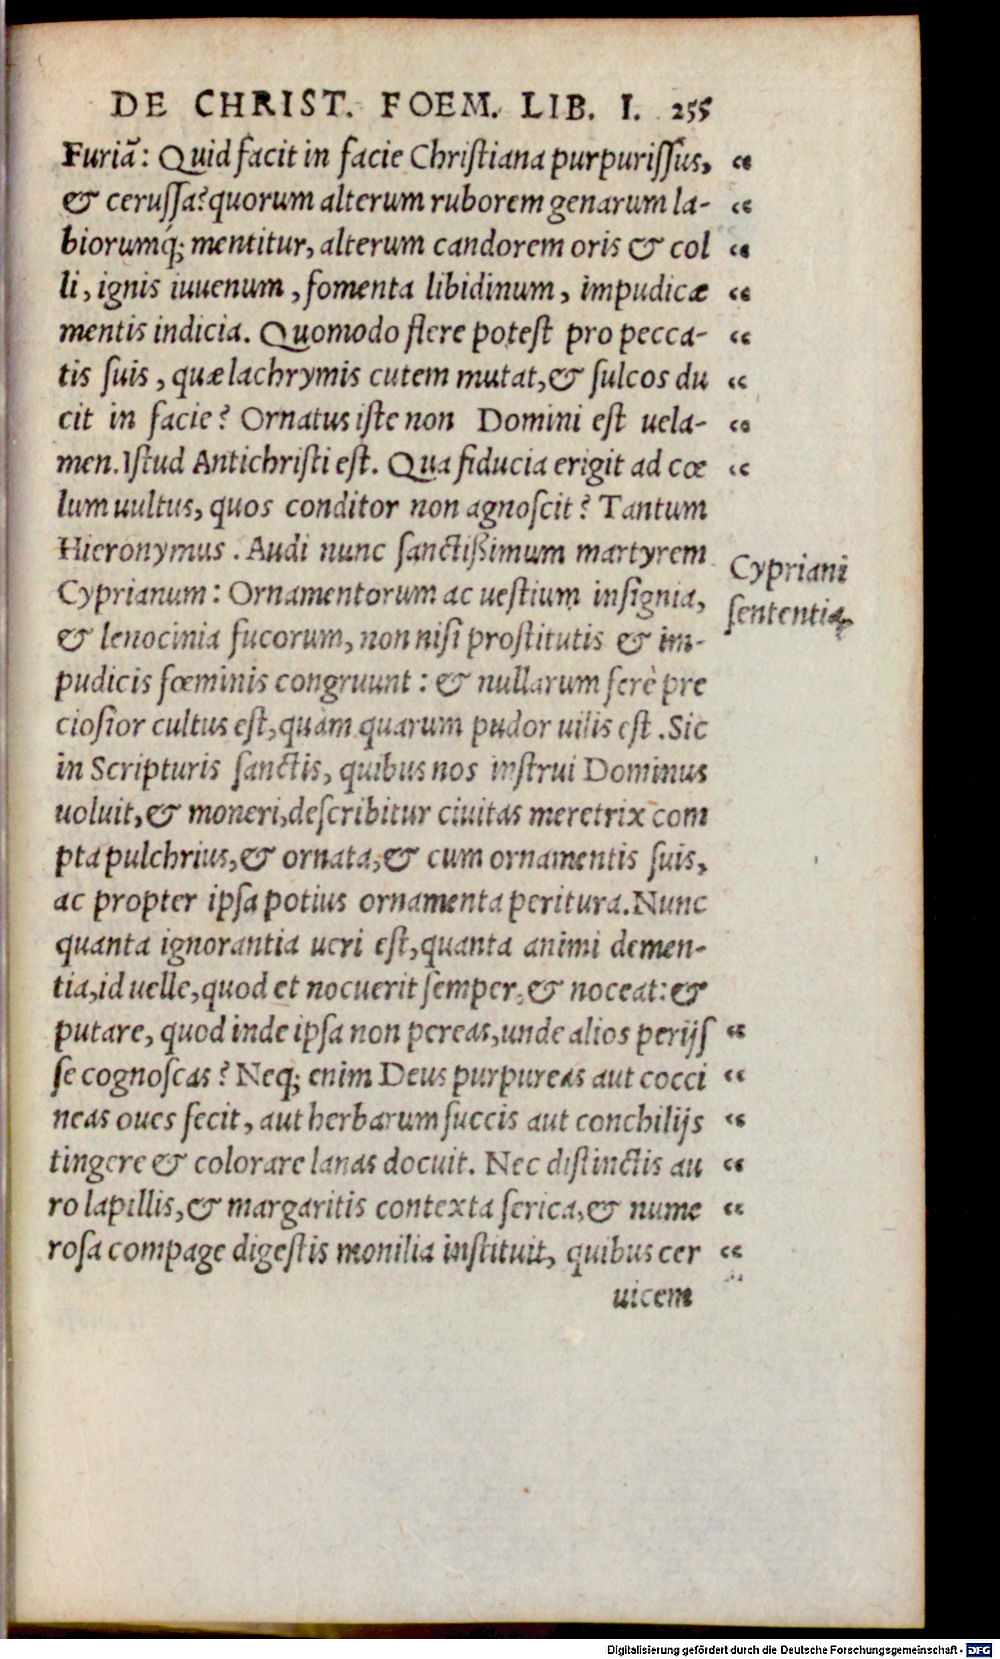 DE CHRIST. FOEM. LIB. I. 255
Furiā: Quid facit in facie Christiana purpurissus, “
& cerussa? quorum alterum ruborem genarum la- “
biorumq́; mentitur, alterum candorem oris & col “
li, ignis iuuenum, fomenta libidinum, impudicæ “
mentis indicia. Quomodo flere potest pro pecca- “
tis suis, quæ lachrymis cutem mutat, & sulcos du “
cit in facie? Ornatus iste non Domini est uela- “
men. Istud Antichristi est. Qua fiducia erigit ad cœ “
lum uultus, quos conditor non agnoscit? Tantum
Hieronymus. Audi nunc sanctißimum martyrem
Cyprianum: Ornamentorum ac uestium insignia,
& lenocinia fucorum, non nisi prostitutis & im-
pudicis fœminis congruunt: & nullarum ferè pre
ciosior cultus est, quàm quarum pudor uilis est. Sic
in Scripturis sanctis, quibus nos instrui Dominus
uoluit, & moneri, describitur ciuitas meretrix com
pta pulchrius, & ornata, & cum ornamentis suis,
ac propter ipsa potius ornamenta peritura. Nunc
quanta ignorantia ueri est, quanta animi demen-
tia, id uelle, quod et nocuerit semper, & noceat: &
putare, quod inde ipsa non pereas, unde alios perijs “
se cognoscas? Neq; enim Deus purpureas aut cocci “
neas oues fecit, aut herbarum succis aut conchilijs “
tingere & colorare lanas docuit. Nec distinctis au “
ro lapillis, & margaritis contexta serica, & nume “
rosa compage digestis monilia instituit, quibus cer “
uicem “
Cypriani
sententia
Digitalisierung gefördert durch die Deutsche Forschungsgemeinschaft - DFG